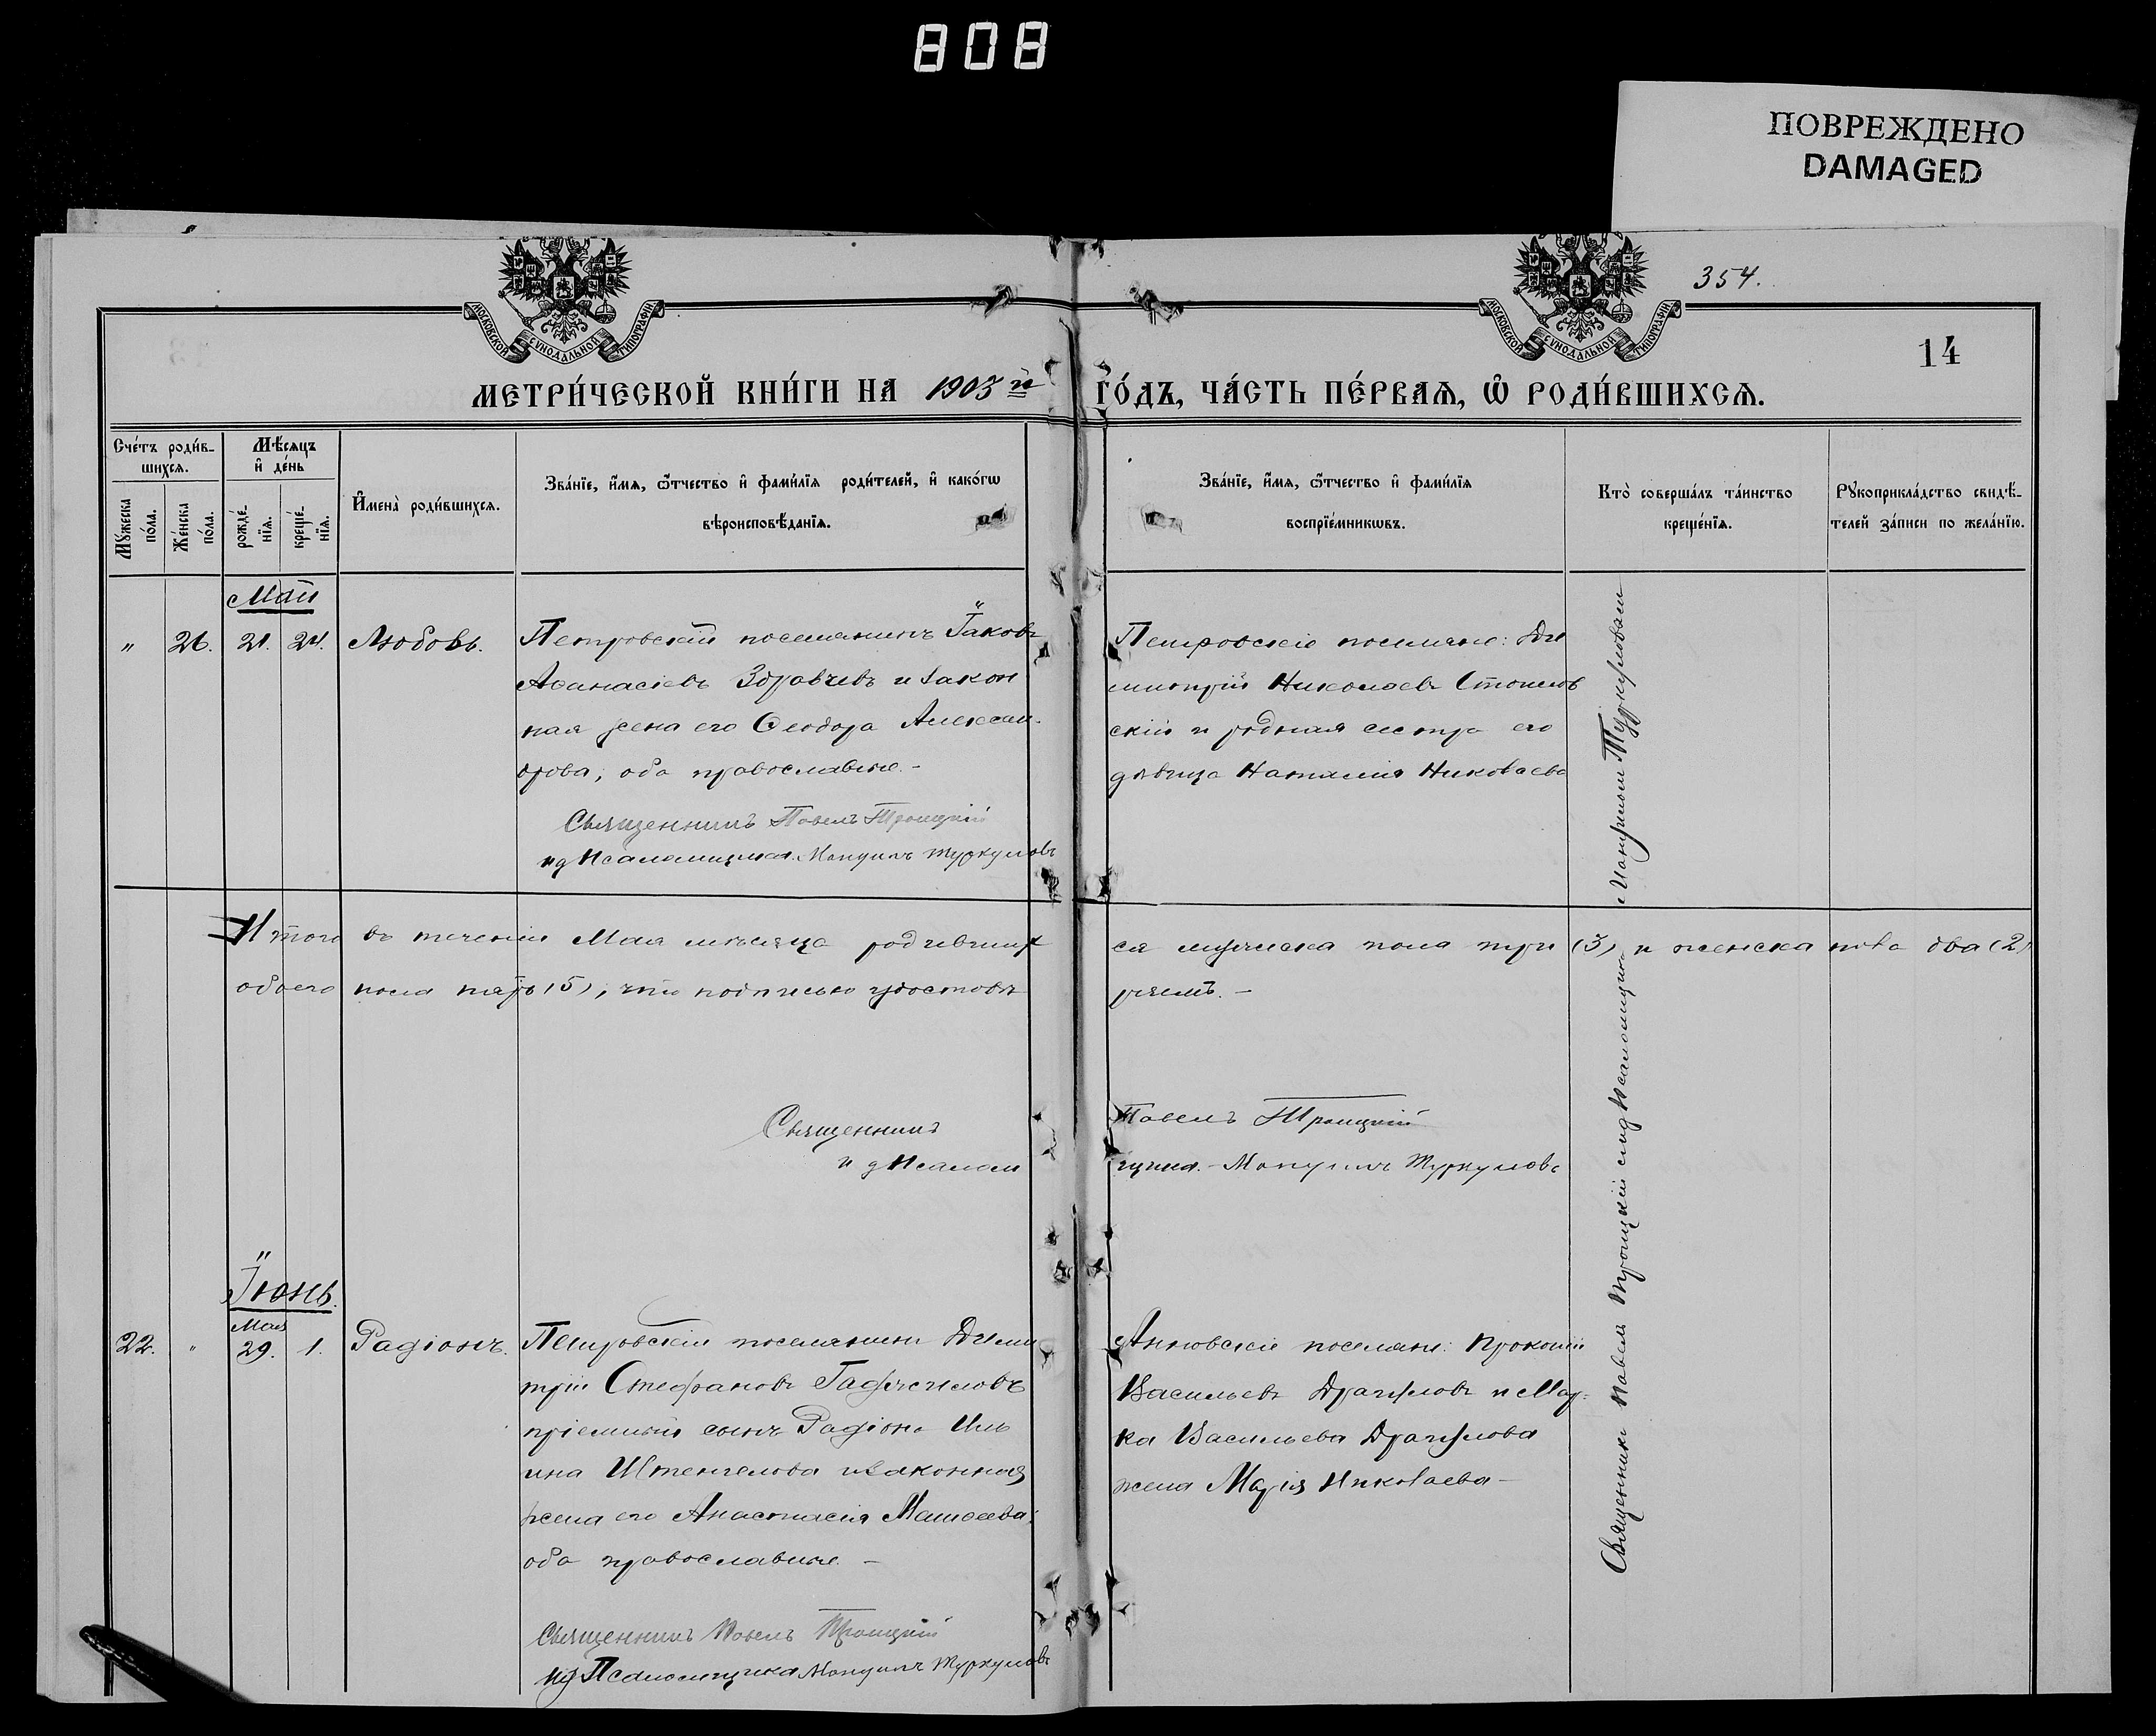 808
ПОВРЕЖДЕНО
DAMAGED
354.
14
МОСКОВСКОЙ СѴНОДАЛЬНОЙ ТИПОГРАФІИ
МОСКОВСКОЙ СѴНОДАЛЬНОЙ ТИПОГРАФІИ
МЕТРИ́ЧЕСКОЙ КНИ́ГИ НА 1903 й ГО́ДЪ, ЧА́СТЬ ПЕ́РВАѦ, Ѽ РОДИ́ВШИХСѦ.
Сче́тъ роди́в-
шихся.
Мѣ́сяцъ
и҆ де́нь
Мꙋ́жеска
по́ла.
Же́нска
по́ла.
рожде́-
нїя.
креще́-
нїя.
И҆мена̀ роди́вшихся.
Зва́нїе, и҆́мя, ѻ҆́тчество и҆ фами́лїя роди́телей, и҆ како́гѡ
вѣроисповѣ́данїя.
Зва́нїе, и҆́мя, ѻ҆́тчество и҆ фами́лїя
воспрїе́мникѡвъ.
Кто̀ соверша́лъ та́инство
креще́нїя.
Рꙋкоприкла́дство свидѣ́-
телей за́писи по жела́нїю.
Май
" 26. 21. 24. Любовь.
Петровскій поселянинъ Іаковъ
Аѳанасіевъ Здравчевъ и закон
ная жена его Ѳеодора Алексан-
дрова, оба православные.-
Священникъ Павелъ Троицкій
ид Псаломщика Мануилъ Туркуловъ
Петровскіе поселяне: Ди
митрій Николаевъ Стоилов
скій и родная сестра его
дѣвица Наталія Николаева
Итого въ теченіи Мая мѣсяца родивших
ся мужеска пола три (3) и женска пола два (2)
обоего пола пять (5), что подписью удостовѣ
ряемъ. -
Священникъ Павелъ Троицкій
и д Псалом щика - Мануилъ Туркуловъ
Іюнь.
Мая
22. " 29. 1. Радіонъ.
Петровскій поселянинъ Дими
трій Стефановъ
пріемный сынъ Радіона Иль
ина и законная
жена его Анастасія Матѳеева;
оба православные. -
Священникъ Павелъ Троицкій
ид Псаломщика Мануилъ Туркуловъ
Анновскіе поселяне: Прокопій
Васильевъ и Мар-
ка Васильева
жена Марія Николаева -
Священникъ Павелъ Троицкій съ ид Псаломщика Мануиломъ Туркуловым